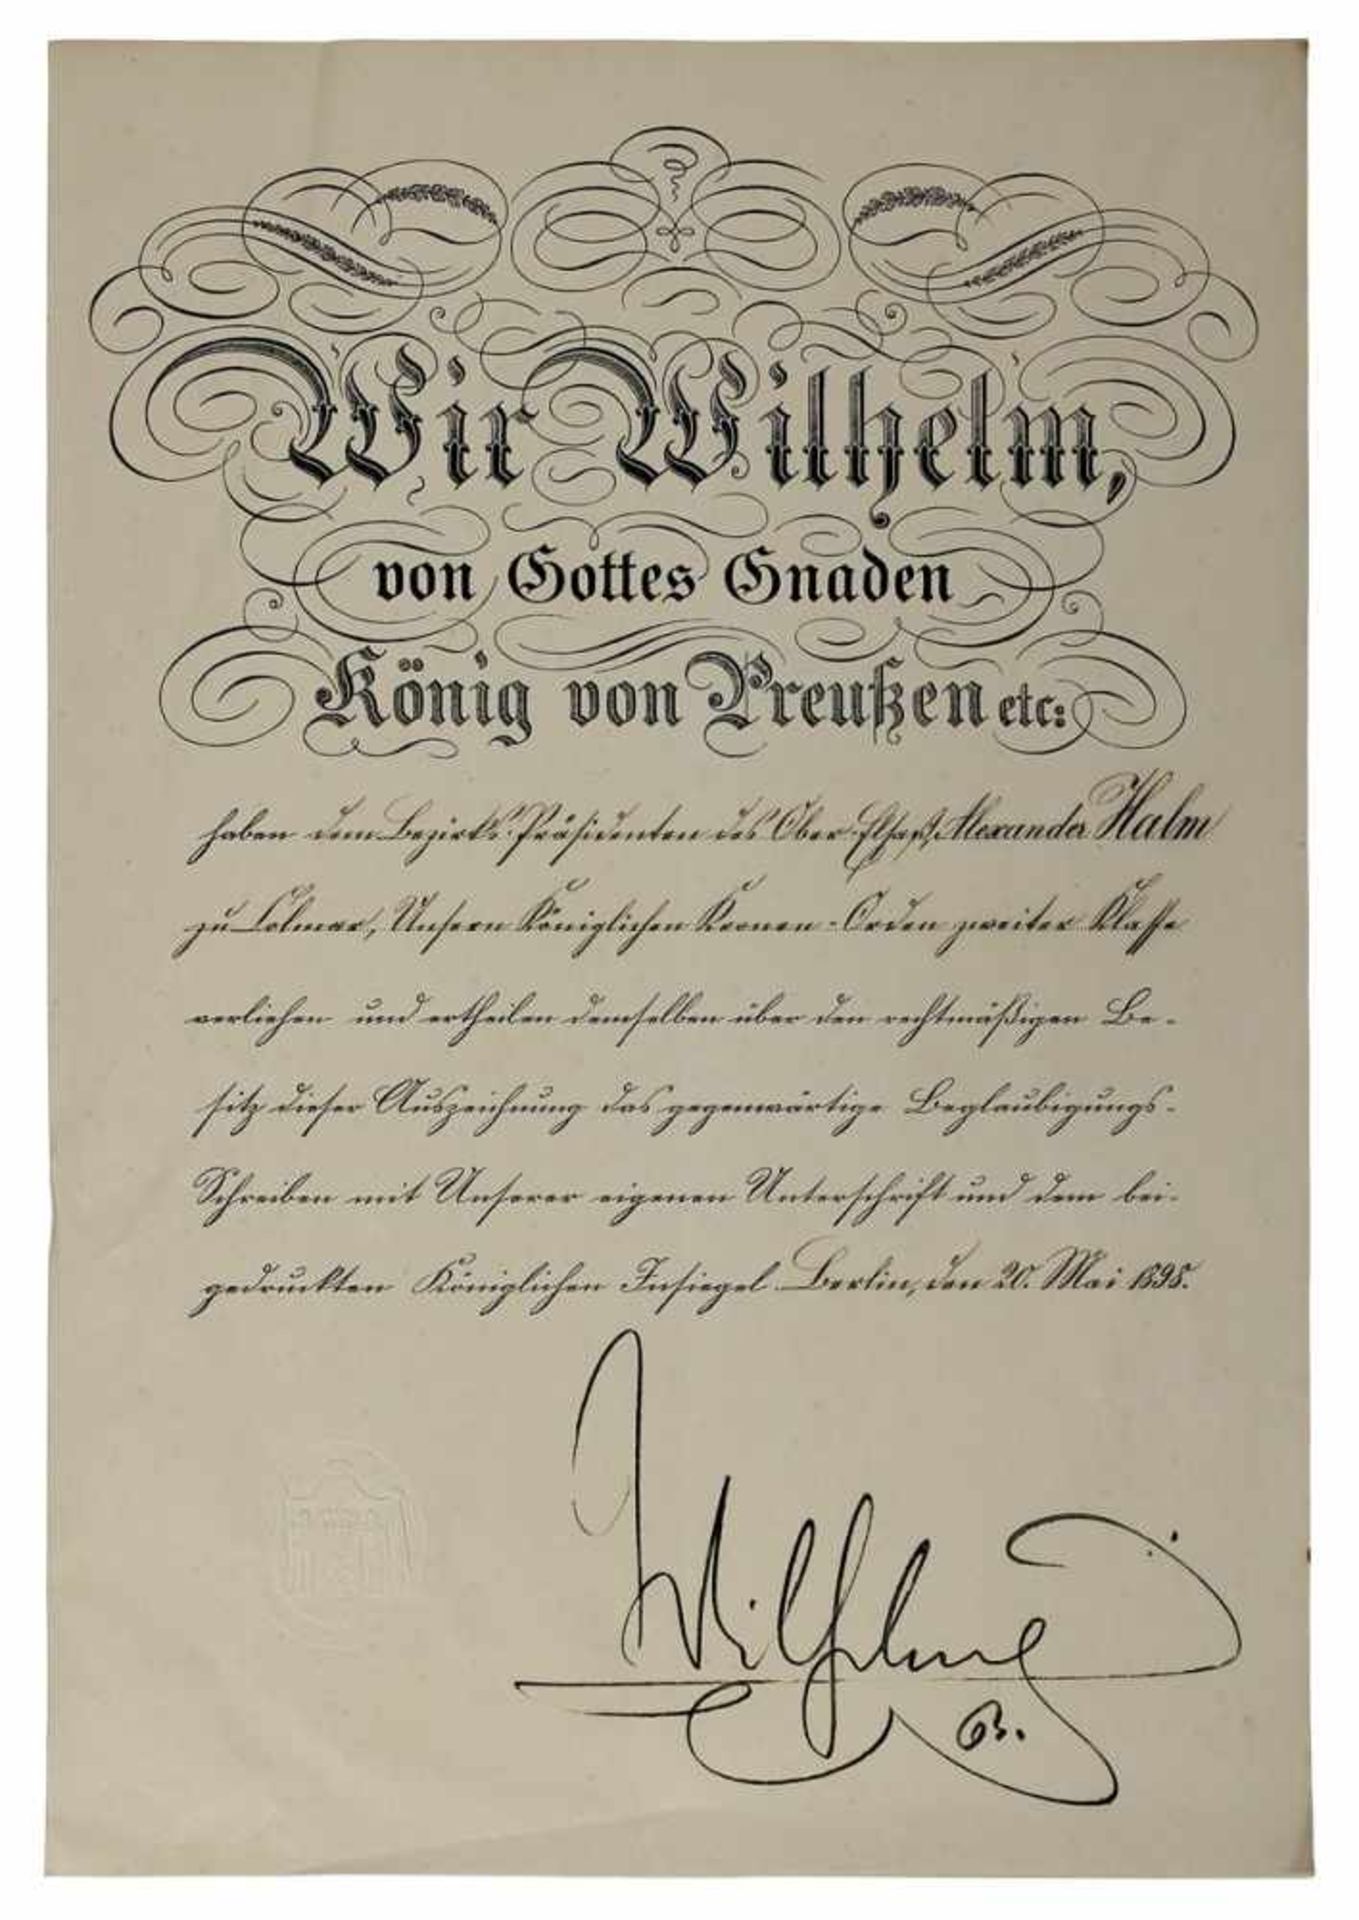 Wir Wilhelm,
von Gottes Gnaden
König von Preußen etc:
haben dem Bezirks-Präsidenten des Ober-Elsaß, Alexander Halm
zu Colmar, Unsern Königlichen Kronen-Orden zweiter Klasse
verliehen und ertheilen demselben über den rechtmäßigen Be-
sitz dieser Auszeichnung das gegenwärtige Beglaubigungs-
Schreiben mit Unserer eigenen Unterschrift und dem bei-
gedruckten Königlichen Insiegel. Berlin, den 20. Mai 1898.
Wilhelm